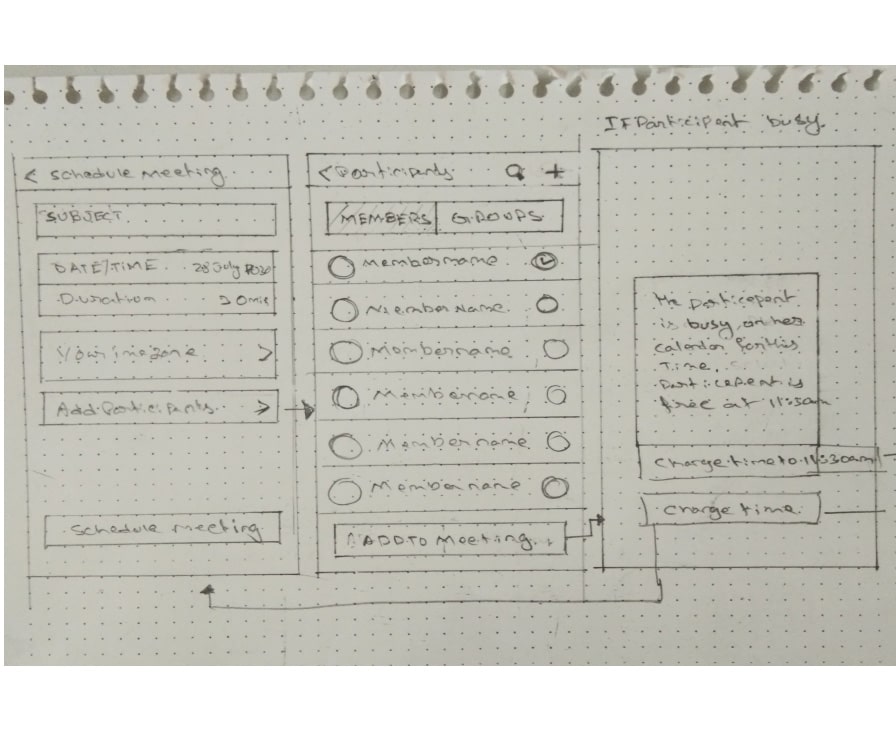 IF Participent busy
< schedule meeting
SUBJECT
DATE/TIME 28 July 2020
Duration 30 min
Your imezone >
Add Participents >
schedule meeting
< Participents +
MEMBERS GROUPS
Membername
Member Name
Membername
Membername
Member name
Member name
ADD TO Meeting
The participent
is busy on her
calander for this
Time,
Participent is
free at 11:30am
Change time to 11:30am
Change time